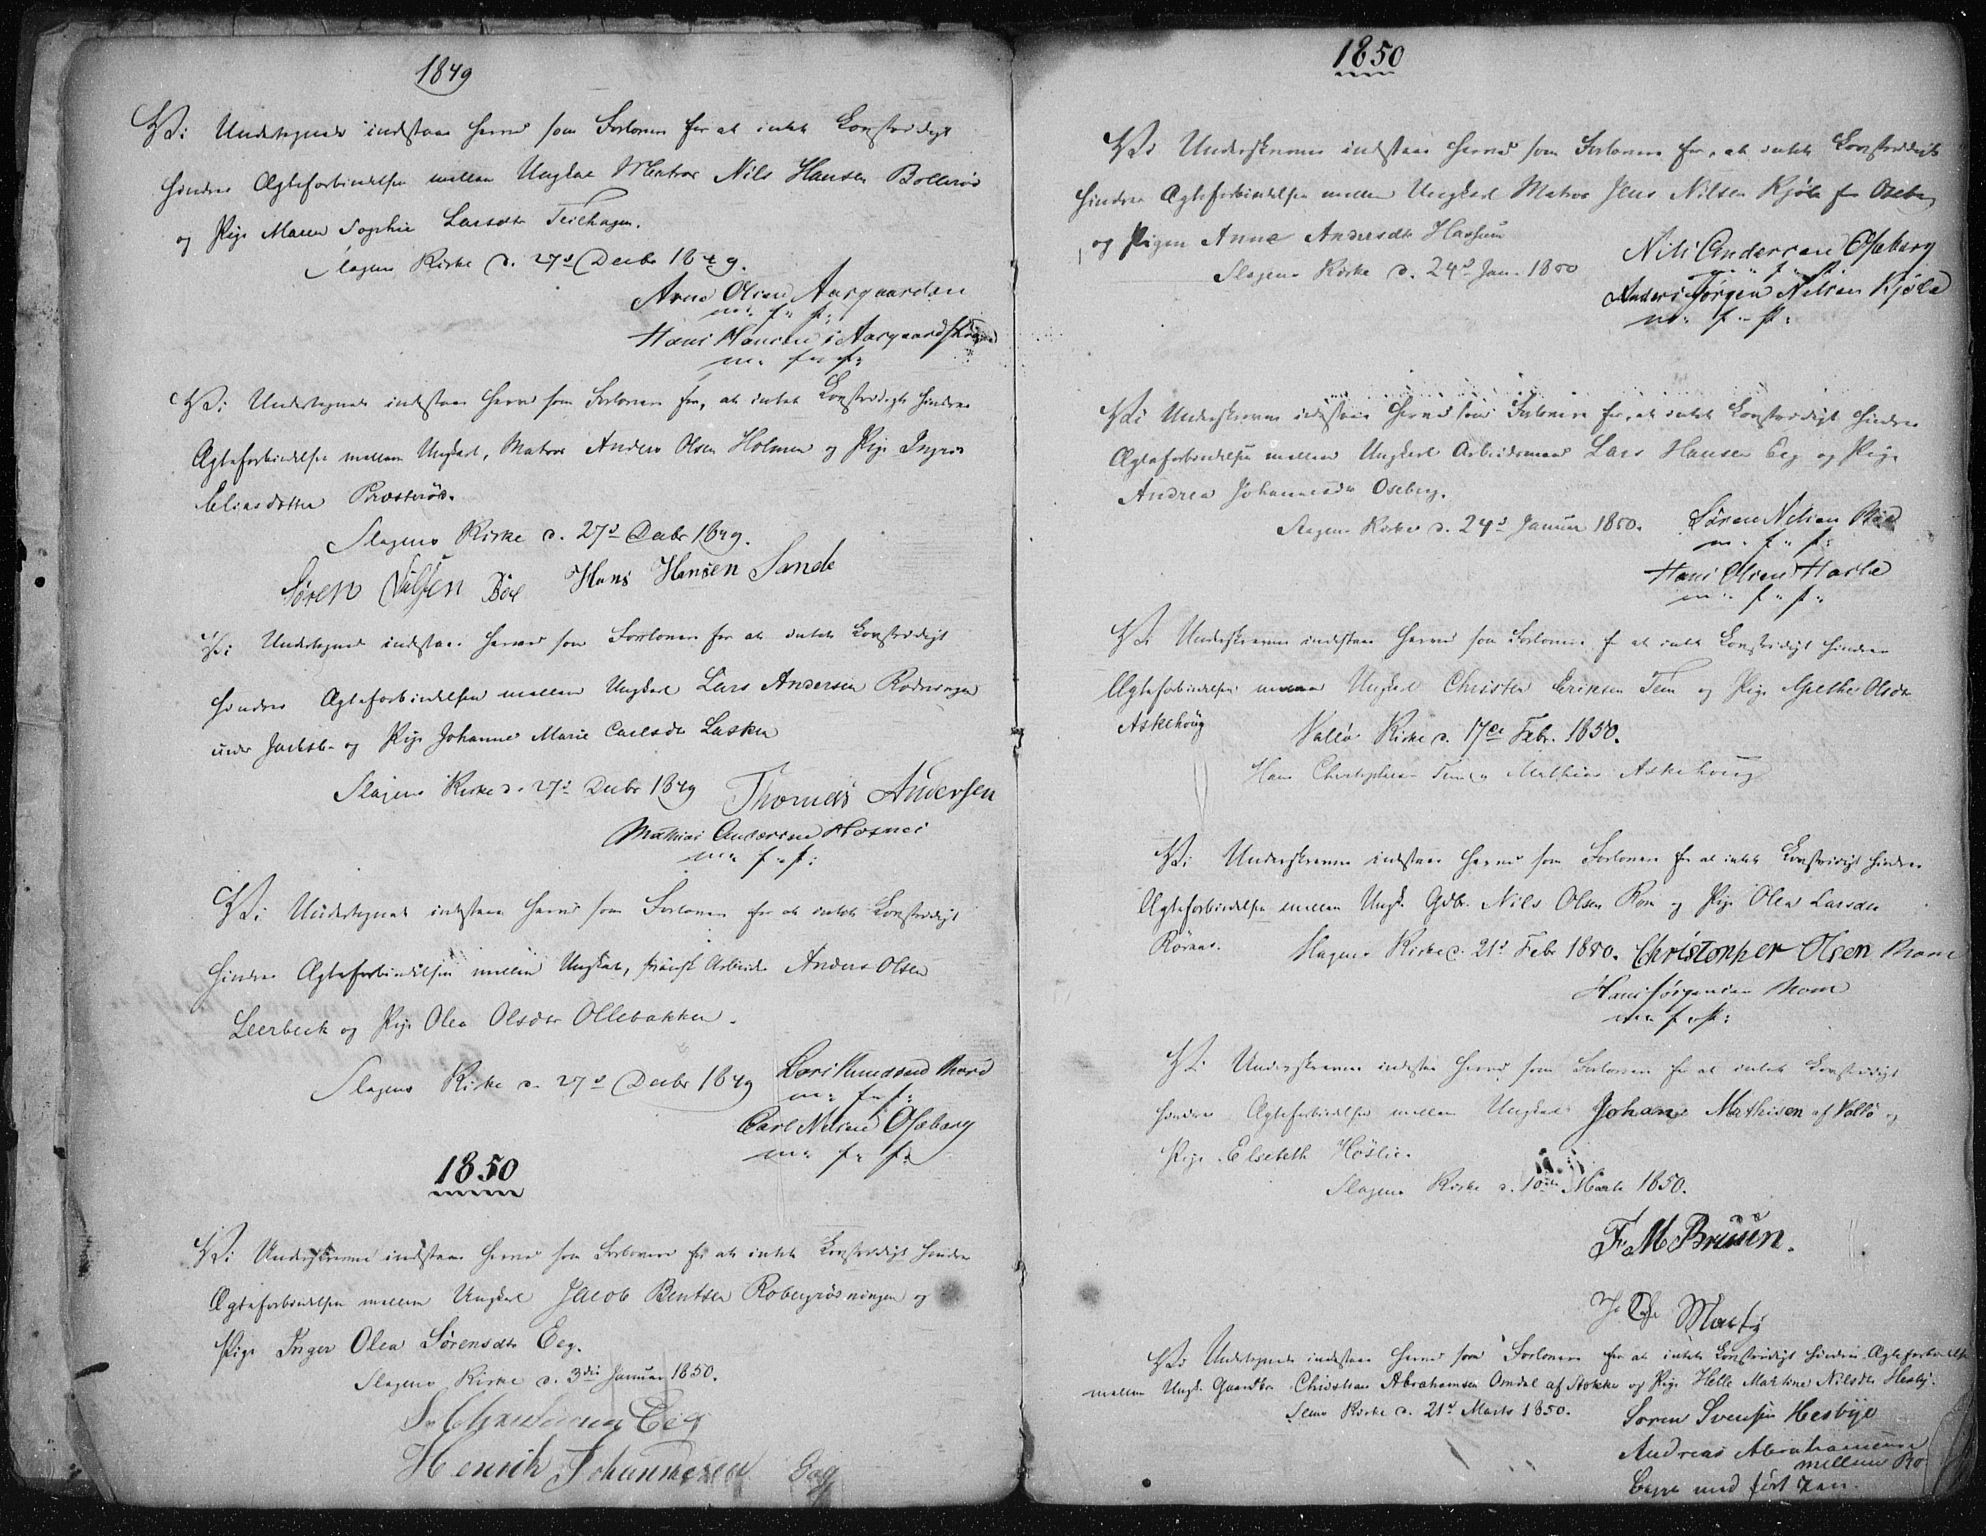 1849
Vi Undertegnede indestaae herved som Forlovere for at intet Lovstridigt
hindrer Ægteforbindelsen mellem Ungkarl Matros Nils Hansen Bollerød
og Pige Maren Sophie Larsdtr Teilhagen.
Slagens Kirke d. 27d Decbr 1849.
Arne Olsen Aasgaarden
m. f. p.
Hans Hansen Aasgaard
m. f. p.
Vi Undertegnede indestaae herved som Forlovere for, at intet Lovstridigt hindrer
Ægteforbindelsen mellem Ungkarl, Matros Anders Olsen Holmen og Pige Ingrid
Eliasdatter Præsterød.
Slagens Kirke d. 27d Decbr 1849.
Søren Nilsen Bøe Hans Hansen Sande
Vi Undertegnede indestaae herved som Forlovere for at intet Lovstridigt
hindrer Ægteforbindelsen mellem Ungkarl Lars Andersen Rodningen
under Jarlsb. og Pige Johanne Marie Carlsdtr Lasken
Slagens Kirke d. 27d Decbr 1849 Thomas Andersen
Mathias Andersen Hosnes
m. f. p.
Vi Undertegnede indestaae herved som Forlovere for at intet Lovstridigt
hindrer Ægteforbindelsen mellem Ungkarl, Arbeider Anders Olsen
Leerbeck og Pige Olea Olsdtr Ollebakken.
Slagens Kirke d. 27d Decbr 1849 Lars Knudsen
m. f. p.
Carl Nilsen Oseberg
m. f. p.
1850
Vi Underskrevne indestaae herved som Forlovere for at intet Lovstridigt hindrer
Ægteforbindelsen mellem Ungkarl Jacob Bentsen Robergrødningen og
Pige Inger Olea Sørensdtr Eeg.
Slagens Kirke d. 3die Januar 1850.
Eeg
Henrik Johannesen
1850
Vi Underskrevne indestaae herved som Forlovere for, at intet Lovstridigt
hindrer Ægteforbindelsen mellem Ungkarl Matros Jens Nilsen Kjøle fra Oseberg
og Pigen Anne Andersdtr Hassum
Slagens Kirke d. 24d Jan. 1850
Nils Andersen Oseberg
m. f. p.
Anders Jørgen Nilsen Kjøle
m. f. p.
Vi Underskrevne indestaae herved som Forlovere for, at intet Lovstridigt hindrer
Ægteforbindelsen mellem Ungkarl Arbeidsmand Lars Hansen Eeg og Pige
Andrea Johannesdtr Oseberg.
Slagens Kirke d. 24d Januar 1850.
Søren Nilsen Bøe
m. f. p.
Hans Olsen Hasle
m. f. p.
Vi Underskrevne indestaae herved som Forlovere for at intet Lovstridigt hindrer
Ægteforbindelsen mellem Ungkarl Christen Eriksen Tem og Pige Olsdtr
Askehoug
Vallø Kirke d. 17de Febr. 1850.
Hans Christophersen Tem og Mathias Askehoug
Vi Underskrevne indestaae herved som Forlovere for at intet Lovstridigt hindrer
Ægteforbindelsen mellem Ungk. Gdbr. Nils Olsen Rom og Pige Olea Larsdtr
Røraas.
Slagens Kirke d. 21d Febr 1850. Christopher Olsen
Hans Jørgensen
m. f. p.
Vi Underskrevne indestaae herved som Forlovere for at intet Lovstridigt
hindrer Ægteforbindelsen mellem Ungkarl Johan Mathisen af Vallø og
Pige Elsebeth Høslie.
Slagens Kirke d. 10de Marts 1850.
F. M Bruun.
Vi Undertegnede indestaae herved som Forlovere for at intet Lovstridigt hindrer Ægteforbindelse
mellem Ungk. Gaardbr. Christian Abrahamsen Omdal af Stokke og Pige Helle Martine Nilsdtr Hesby.
Sems Kirke d. 21d Marts 1850.
Søren Svensen Hesbye
Andreas Abrahamsen
mellem Bo
med ført Pen.